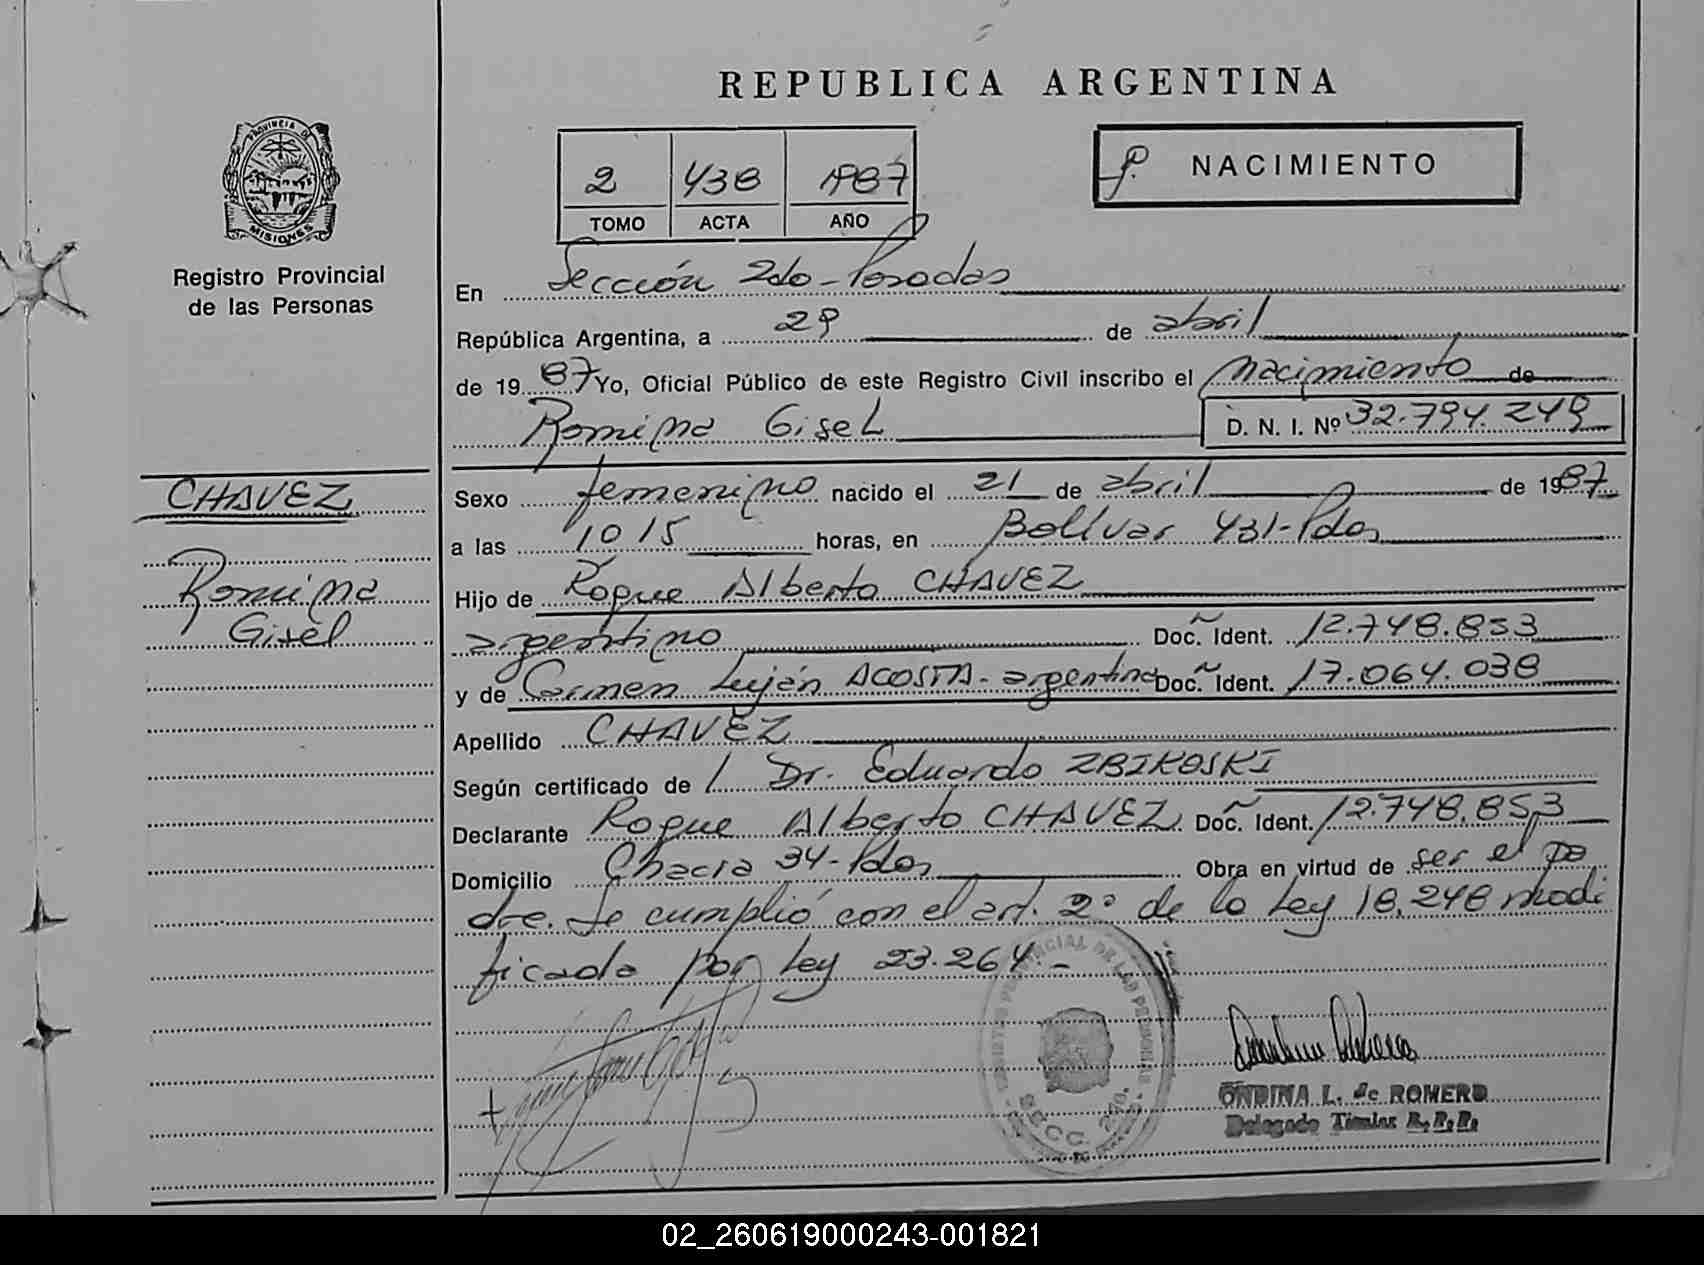 REPUBLICA ARGENTINA
PROVINCIA DE
MISIONES
Registro Provincial
de las Personas
2 438 1987
TOMO ACTA AÑO
NACIMIENTO
En Sección 2do - Posadas
República Argentina, a 29 de abril
de 1987 Yo, Oficial Público de este Registro Civil inscribo el Nacimiento de
Romina Gisel D. N. I. Nº 32.794.249
CHAVEZ
Romina
Gisel
Sexo femenino nacido el 21 de abril de 1987
a las 10 15 horas, en Bolívar 431 - Pdas
Hijo de Roque Alberto CHAVEZ
argentino Doc. Ident. 12.748.853
y de Carmen Luján ACOSTA - argentina Doc. Ident. 17.064.038
Apellido CHAVEZ
Según certificado de Dr. Eduardo ZBIKOSKI
Declarante Roque Alberto CHAVEZ Doc. Ident. 12.748.853
Domicilio Chacra 34 - Pdas Obra en virtud de ser el pa
dre. Se cumplió con el art. 2º de la Ley 18.248 modi
ficada por Ley 23.264 -
SECC. 2da.
ONDINA L. de ROMERO
Delegado Titular R. P. P.
02_260619000243-001821